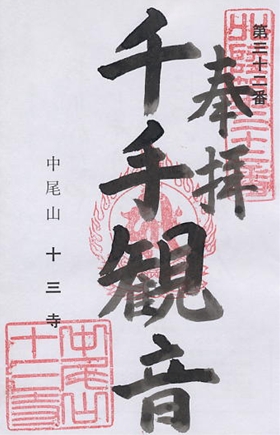 第三十二番
奉拝
千手観音
中尾山 十三寺
中尾山
十三寺